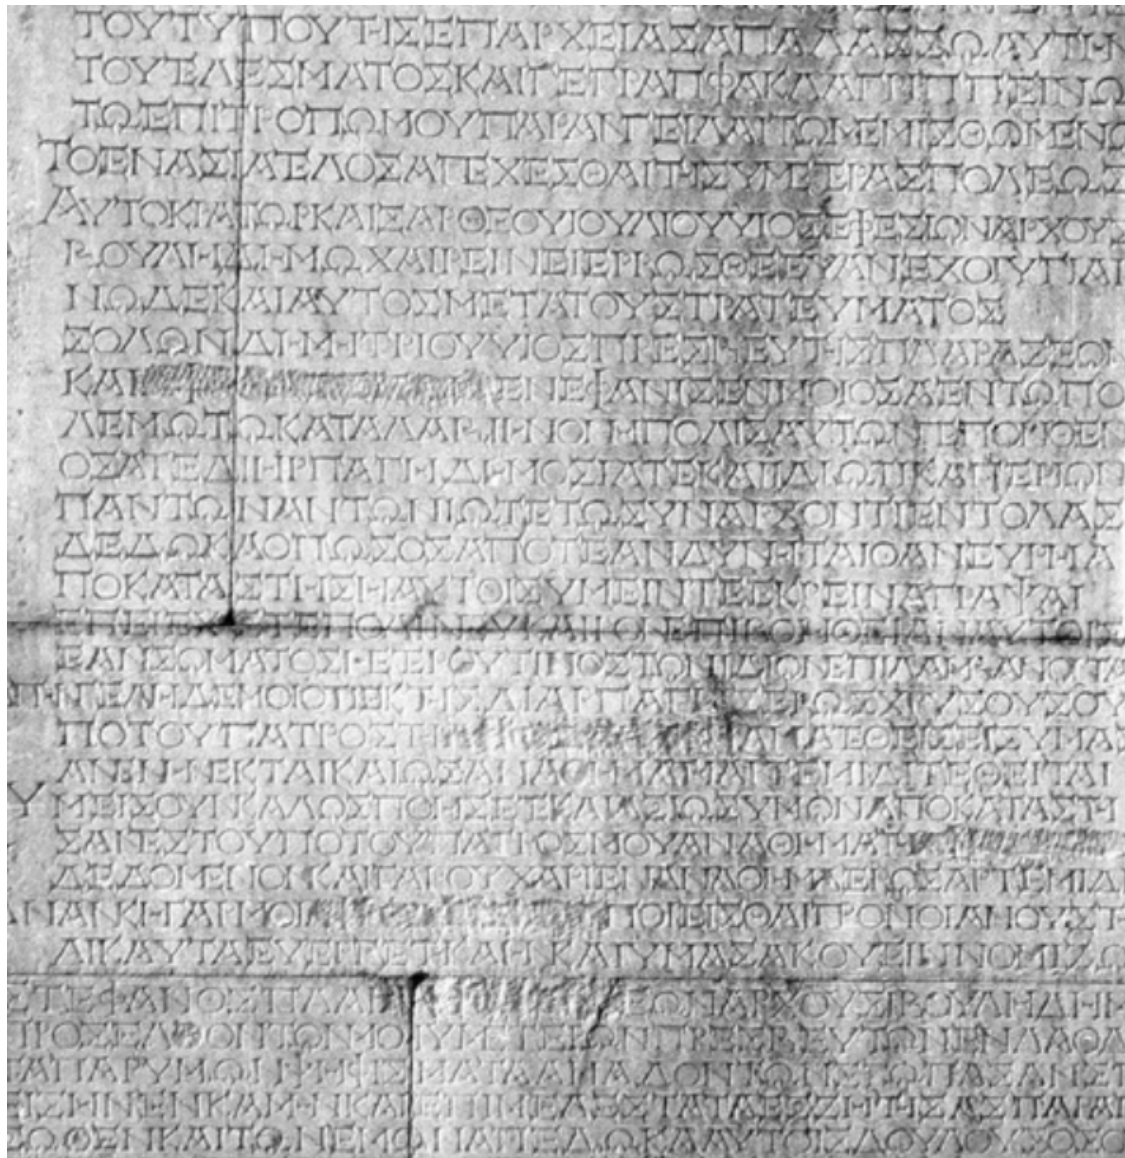 ΤΟΥΤΥΠΟΥΤΗΣΕΠΑΡΧΕΙΑΣΑΠΑΛΑΣΣΩΑΥΤΗΝ
ΤΟΥΤΕΛΕΣΜΑΤΟΣΚΑΙΓΕΓΡΑΠΦΑΚΛ
ΤΩΕΠΙΤΡΟΠΩΜΟΥΠΑΡΑΝΓΕΙΛΑΙΤΩΜΕΜΙΣΘΩΜΕΝΩ
ΤΟΕΝΑΣΙΑΤΕΛΟΣΑΠΕΧΕΣΘΑΙΤΗΣΥΜΕΤΕΡΑΣΠΟΛΕΩΣ
ΑΥΤΟΚΡΑΤΩΡΚΑΙΣΑΡΘΕΟΥΙΟΥΛΙΟΥΥΙΟΣΕΦΕΣΙΩΝΑΡΧΟΥΣ
ΒΟΥΛΗΔΗΜΩΧΑΙΡΕΙΝΕΙΕΡΡΩΣΘΕΕΥΑΝΕΧΟΙΥΓΙΑΙ
ΝΩΔΕΚΑΙΑΥΤΟΣΜΕΤΑΤΟΥΣΤΡΑΤΕΥΜΑΤΟΣ
ΣΟΛΩΝΔΗΜΗΤΡΙΟΥΥΙΟΣΠΡΕΣΒΕΥΤΗΣΠΛΑΡΑΣΕΩΝ
ΚΑΙ ΕΝΕΦΑΝΙΣΕΝΜΟΙΟΣΑΕΝΤΩΠΟ
ΛΕΜΩΤΩΚΑΤΑΛΑΒΙΗΝΟΝΗΠΟΛΙΣΑΥΤΩΝΕΠΟΡΘΕΝ
ΟΣΑΤΕΔΙΗΡΠΑΓΗΔΗΜΟΣΙΑΤΕΚΑΙΙΔΙΩΤΙΚΑΠΕΡΙΩΝ
ΠΑΝΤΩΝΑΝΤΩΝΙΩΤΕΤΩΣΥΝΑΡΧΟΝΤΙΕΝΤΟΛΑΣ
ΔΕΔΩΚΑΟΠΩΣΟΣΑΠΟΤΕΑΝΔΥΝΗΤΑΙΟΑΝΕΥΡΗΑ
ΠΟΚΑΤΑΣΤΗΣΗΑΥΤΟΙΣΥΜΕΙΝΤΕΕΚΡΕΙΝΑΓΡΑΨΑΙ
ΕΑΝΣΩΜΑΤΟΣΗΕΤΕΡΟΥΤΙΝΟΣΤΩΝΙΔΙΩΝΕΠΙΛΑΜΒΑΝΩΝΤΑ
ΑΠΗΝΓΕΛΗΔΕΜΟΙΟΤΙΕΚΤΗΣΔΙΑΡΠΑΓΗΣΕΡΩΣΧΡΥΣΟΥΣΟΥ
ΠΟΤΟΥΠΑΤΡΟΣΤΗ ΕΙΣΥΜΑΣ
ΑΝΕΝΗΝΕΚΤΑΙΚΑΙΩΣΑΝΑΘΗΜΑΤΗΑΡΤΕΜΙΔΙΤΕΘΕΙΤΑΙ
ΥΜΕΙΣΟΥΝΚΑΛΩΣΠΟΗΣΕΤΕΚΑΙΑΞΙΩΣΥΜΩΝΑΠΟΚΑΤΑΣΤΗ
ΣΑΝΕΣΤΟΥΠΟΤΟΥΠΑΤΡΟΣΜΟΥΑΝΑΘΗΜΑΤΗ
ΔΕΔΟΜΕΝΟΝΚΑΙΓΑΡΟΥΧΑΡΙΕΝΑΝΑΘΗΜΑΕΡΩΣΑΡΤΕΜΙΔΙ
ΑΝΑΝΚΗΓΑΡΜΟΙ ΠΟΙΕΙΣΘΑΙΠΡΟΝΟΙΑΝΟΥΣΤΗ
ΛΙΚΑΥΤΑΕΥΕΡΓΕΤΗΚΑΗΝΚΑΙΥΜΑΣΑΚΟΥΕΙΝΝΟΜΙΖΩ
ΣΤΕΦΑΝΟΣΠΛΑΡΑ ΕΩΝΑΡΧΟΥΣΙΒΟΥΛΗΔΗΜ
ΠΡΟΣΕΛΘΟΝΤΩΝΜΟΙΥΜΕΤΕΡΩΝΠΡΕΣΒΕΥΤΩΝΕΝΛΑΟΔ
ΤΑΠΑΡΥΜΩΝΨΗΦΙΣΜΑΤΑΑΝΑΔΟΝΤΩΝΕΓΩΠΑΣΑΝΣΤ
ΕΙΣΗΝΕΝΚΑΜΗΝΚΑΙΕΠΙΜΕΛΕΣΤΑΤΑΕΖΗΤΗΣΑΣΠΑΡΑΠ